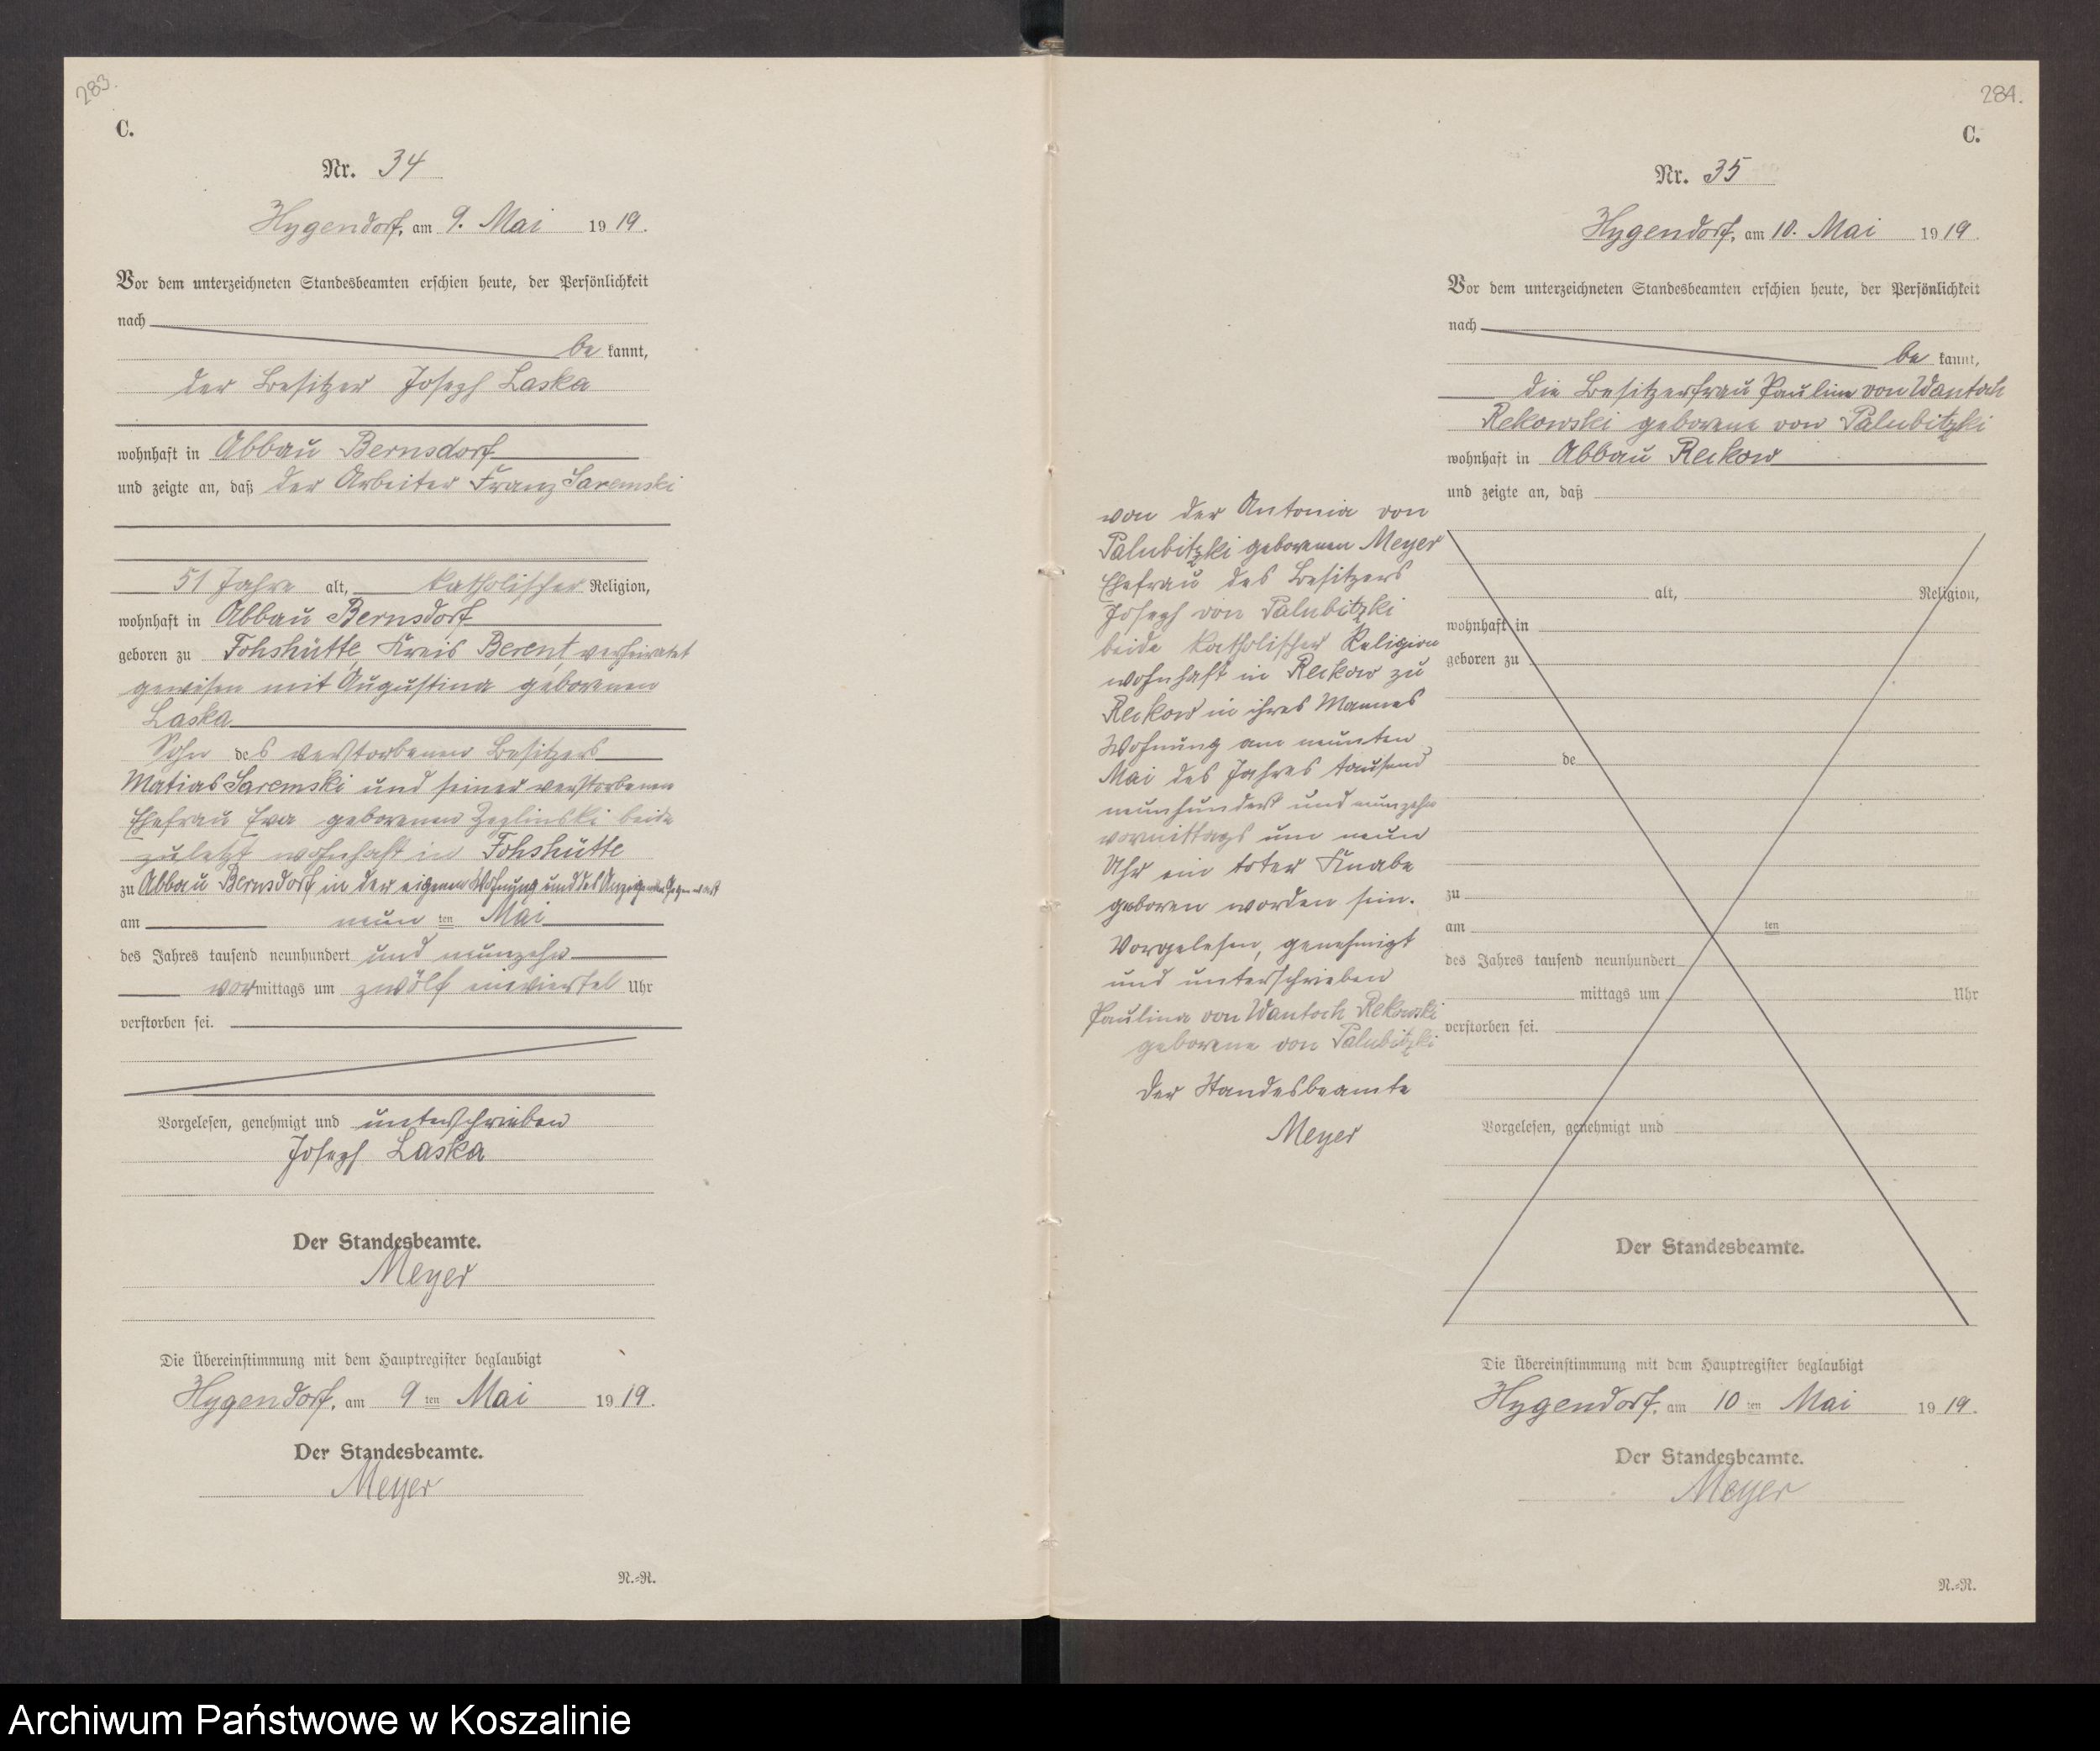 283.
C.
Nr. 34
Hygendorf, am 9. Mai 1919.
Vor dem unterzeichneten Standesbeamten erschien heute, der Persönlichkeit
nach
be kannt,
der Besitzer Joseph Laska
wohnhaft in Abbau Bernsdorf
und zeigte an, daß der Arbeiter Franz Saremski
51 Jahre alt, katholischer Religion,
wohnhaft in Abbau Bernsdorf
geboren zu Fohshütte, Kreis Berent, verheiratet
gewesen mit Augustina geborenen
Laska
Sohn des verstorbenen Besitzers
Matias Saremski und seiner verstorbenen
Ehefrau Eva geborenen beide
zuletzt wohnhaft in Fohshütte
zu Abbau Bernsdorf in der eigenen Wohnung und des Anzeigenden Gegenwart
am neun ten Mai
des Jahres tausend neunhundert und neunzehn
vormittags um zwölf einviertel Uhr
verstorben sei.
Vorgelesen, genehmigt und unterschrieben
Joseph Laska
Der Standesbeamte.
Meyer
Die Übereinstimmung mit dem Hauptregister beglaubigt
Hygendorf, am 9 ten Mai 1919.
Der Standesbeamte.
Meyer
N.=R.
284.
C.
Nr. 35
Hygendorf, am 10. Mai 1919.
Vor dem unterzeichneten Standesbeamten erschien heute, der Persönlichkeit
nach
be kannt,
die Besitzerfrau Pauline von Wantoch
Rekowski geborene von Palubitzki
wohnhaft in Abbau Reckow
und zeigte an, daß
von der Antonia von
Palubitzki geborenen Meyer
Ehefrau des Besitzers
Joseph von Palubitzki
beide katholischer Religion
wohnhaft in Reckow zu
Reckow in ihres Mannes
Wohnung am neunten
Mai des Jahres tausend
neunhundert und neunzehn
vormittags um neun
Uhr ein toter Knabe
geboren worden sei.
Vorgelesen, genehmigt
und unterschrieben
Paulina von Wantoch Rekowski
geborene von Palubitzki
Der Standesbeamte
Meyer
alt, Religion,
wohnhaft in
geboren zu
de
zu
am ten
des Jahres tausend neunhundert
mittags um Uhr
verstorben sei.
Vorgelesen, genehmigt und
Der Standesbeamte.
Die Übereinstimmung mit dem Hauptregister beglaubigt
Hygendorf, am 10 ten Mai 1919.
Der Standesbeamte.
Meyer
N.=R.
Archiwum Państwowe w Koszalinie